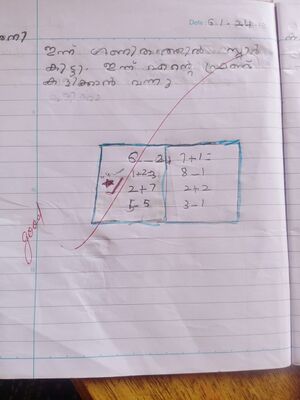 Date : 6.1.24
ഇന്ന് ഗണിതത്തിൽ സ്റ്റാർ
കിട്ടി. ഇന്ന് എന്റെ ഫ്രണ്ട്
കളിക്കാൻ വന്നു
6 - 2 7+1=
1+2= 8-1
2+7 2+2
5-5 3-1
good